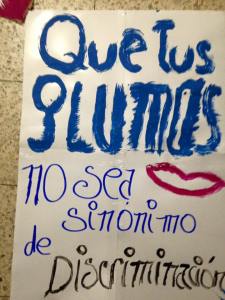 Que Tus
PLUMAS
no sea
sinónimo
de
Discriminación